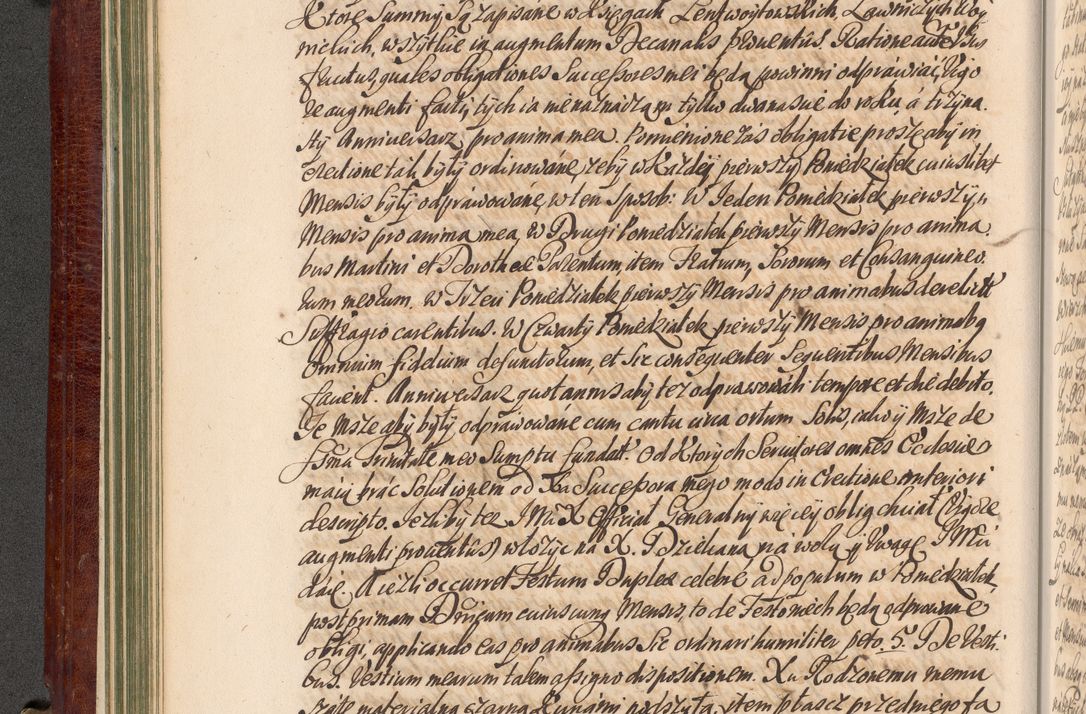 Ktore Summy Są Zapisane w Xsięgach Lentwoytowskich, Ławniczych
mickich, wszytkie in augmentum Decanalis proventûs. Ratione
fructus, quales obligationes Successores mei będą powinni odprawiać, Vigo
re augmenti facti, tych ia nienaznaczam tylko dwanascie do roku á trzyna
sty Anniversarz pro anima mea. Pomienione zás obligatie proszę aby in
erectione ták były ordinowané, żeby w Każdej pierwszy Poniedziałek cuiuslibet
Mensis były odprawowané, w ten sposob: W Jeden Poniedziałek pierwszy
Mensis pro anima mea, W Drugi Poniedziałek pierwszy Mensis pro anima
bus Martini et Dorotheæ Parentum, item Fratrum, Sororum et Consanguineo
rum meorum. W Trzeci Poniedziałek pierwszy Mensis pro animabus derelictis
Suffragio carentibus. W Czwarty Poniedziałek pierwszy Mensis pro animabq
Omnium fidelium defunctorum, et Sic consequenter Sequentibus Mensibus
facient. Anniwersarz quotannis aby tez odprawowali tempore et die debito.
Te Msze aby były odprawowané cum cantu circa ortum Solis, iako y Msze de
Ssma Trinitate meo Sumptu fundat. Od Ktorych Servitores omnes Ecclesiæ
maią brác Solutionem od Xa Successora mego modo in Erectione anteriori
descripto. Jeżliby tez JMci X Officiał Generalny więcey oblig chciał (Vigore
augmenti proventûs) włożyc na X. Dziekana ná wolą y Uwagę JMci
dáię. A ieżli occurret Festum Duplex celebre ad populum w Poniedziałek
post primam Dnicam cuiuscunq Mensis, to de Festo niech będą odprawiane
obligi, applicando eas pro animabus Sic ordinari humiliter peto. 5. De Vesti
bus. Vestium mearum talem assigno dispositionem. Xu Rodzonemu memu
száte materialną czarną Kunámi podszytą, item płaszcz przedniego